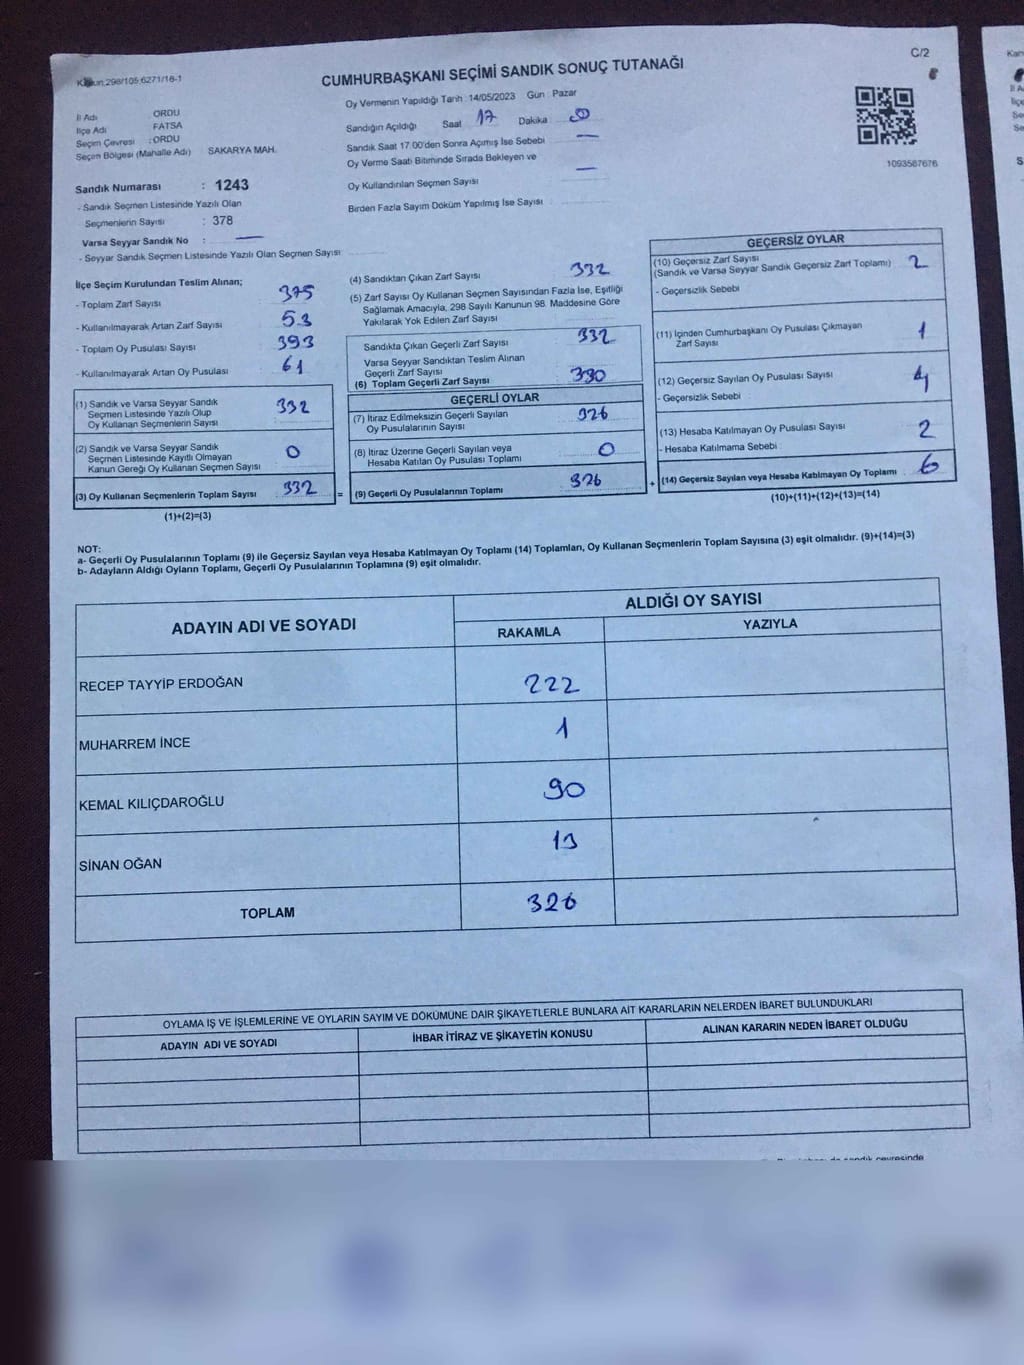 C/2
CUMHURBAŞKANI SEÇİMİ SANDIK SONUÇ TUTANAĞI
298/105;6271/16-1
Oy Vermenin Yapıldığı Tarih :14/05/2023 Gün : Pazar
İl Adı ORDU
İlçe Adı FATSA
Seçim Çevresi :ORDU
Seçim Bölgesi (Mahalle Adı) SAKARYA MAH.
Sandığın Açıldığı Saat 17 Dakika
Sandık Saat 17.00'den Sonra Açılmış İse Sebebi —
Oy Verme Saati Bitiminde Sırada Bekleyen ve
Oy Kullandırılan Seçmen Sayısı —
Birden Fazla Sayım Döküm Yapılmış İse Sayısı
1093567676
Sandık Numarası : 1243
- Sandık Seçmen Listesinde Yazılı Olan
Seçmenlerin Sayısı : 378
Varsa Seyyar Sandık No : —
- Seyyar Sandık Seçmen Listesinde Yazılı Olan Seçmen Sayısı
İlçe Seçim Kurulundan Teslim Alınan;
- Toplam Zarf Sayısı 375
- Kullanılmayarak Artan Zarf Sayısı 53
- Toplam Oy Pusulası Sayısı 393
- Kullanılmayarak Artan Oy Pusulası 61
(1) Sandık ve Varsa Seyyar Sandık
Seçmen Listesinde Yazılı Olup
Oy Kullanan Seçmenlerin Sayısı 332
(2) Sandık ve Varsa Seyyar Sandık
Seçmen Listesinde Kayıtlı Olmayan
Kanun Gereği Oy Kullanan Seçmen Sayısı 0
(3) Oy Kullanan Seçmenlerin Toplam Sayısı 332
(1)+(2)=(3)
(4) Sandıktan Çıkan Zarf Sayısı 332
(5) Zarf Sayısı Oy Kullanan Seçmen Sayısından Fazla İse, Eşitliği
Sağlamak Amacıyla, 298 Sayılı Kanunun 98. Maddesine Göre
Yakılarak Yok Edilen Zarf Sayısı
Sandıkta Çıkan Geçerli Zarf Sayısı 332
Varsa Seyyar Sandıktan Teslim Alınan
Geçerli Zarf Sayısı
(6) Toplam Geçerli Zarf Sayısı 330
GEÇERLİ OYLAR
(7) İtiraz Edilmeksizin Geçerli Sayılan
Oy Pusulalarının Sayısı 326
(8) İtiraz Üzerine Geçerli Sayılan veya
Hesaba Katılan Oy Pusulası Toplamı 0
= (9) Geçerli Oy Pusulalarının Toplamı 326
GEÇERSİZ OYLAR
(10) Geçersiz Zarf Sayısı
(Sandık ve Varsa Seyyar Sandık Geçersiz Zarf Toplamı) 2
- Geçersizlik Sebebi
(11) İçinden Cumhurbaşkanı Oy Pusulası Çıkmayan
Zarf Sayısı 1
(12) Geçersiz Sayılan Oy Pusulası Sayısı 4
- Geçersizlik Sebebi
(13) Hesaba Katılmayan Oy Pusulası Sayısı 2
- Hesaba Katılmama Sebebi
+ (14) Geçersiz Sayılan veya Hesaba Katılmayan Oy Toplamı 6
(10)+(11)+(12)+(13)=(14)
NOT:
a- Geçerli Oy Pusulalarının Toplamı (9) ile Geçersiz Sayılan veya Hesaba Katılmayan Oy Toplamı (14) Toplamları, Oy Kullanan Seçmenlerin Toplam Sayısına (3) eşit olmalıdır. (9)+(14)=(3)
b- Adayların Aldığı Oyların Toplamı, Geçerli Oy Pusulalarının Toplamına (9) eşit olmalıdır.
ADAYIN ADI VE SOYADI ALDIĞI OY SAYISI
RAKAMLA YAZIYLA
RECEP TAYYİP ERDOĞAN 222
MUHARREM İNCE 1
KEMAL KILIÇDAROĞLU 90
SİNAN OĞAN 13
TOPLAM 326
OYLAMA İŞ VE İŞLEMLERİNE VE OYLARIN SAYIM VE DÖKÜMÜNE DAİR ŞİKAYETLERLE BUNLARA AİT KARARLARIN NELERDEN İBARET BULUNDUKLARI
ADAYIN ADI VE SOYADI İHBAR İTİRAZ VE ŞİKAYETİN KONUSU ALINAN KARARIN NEDEN İBARET OLDUĞU